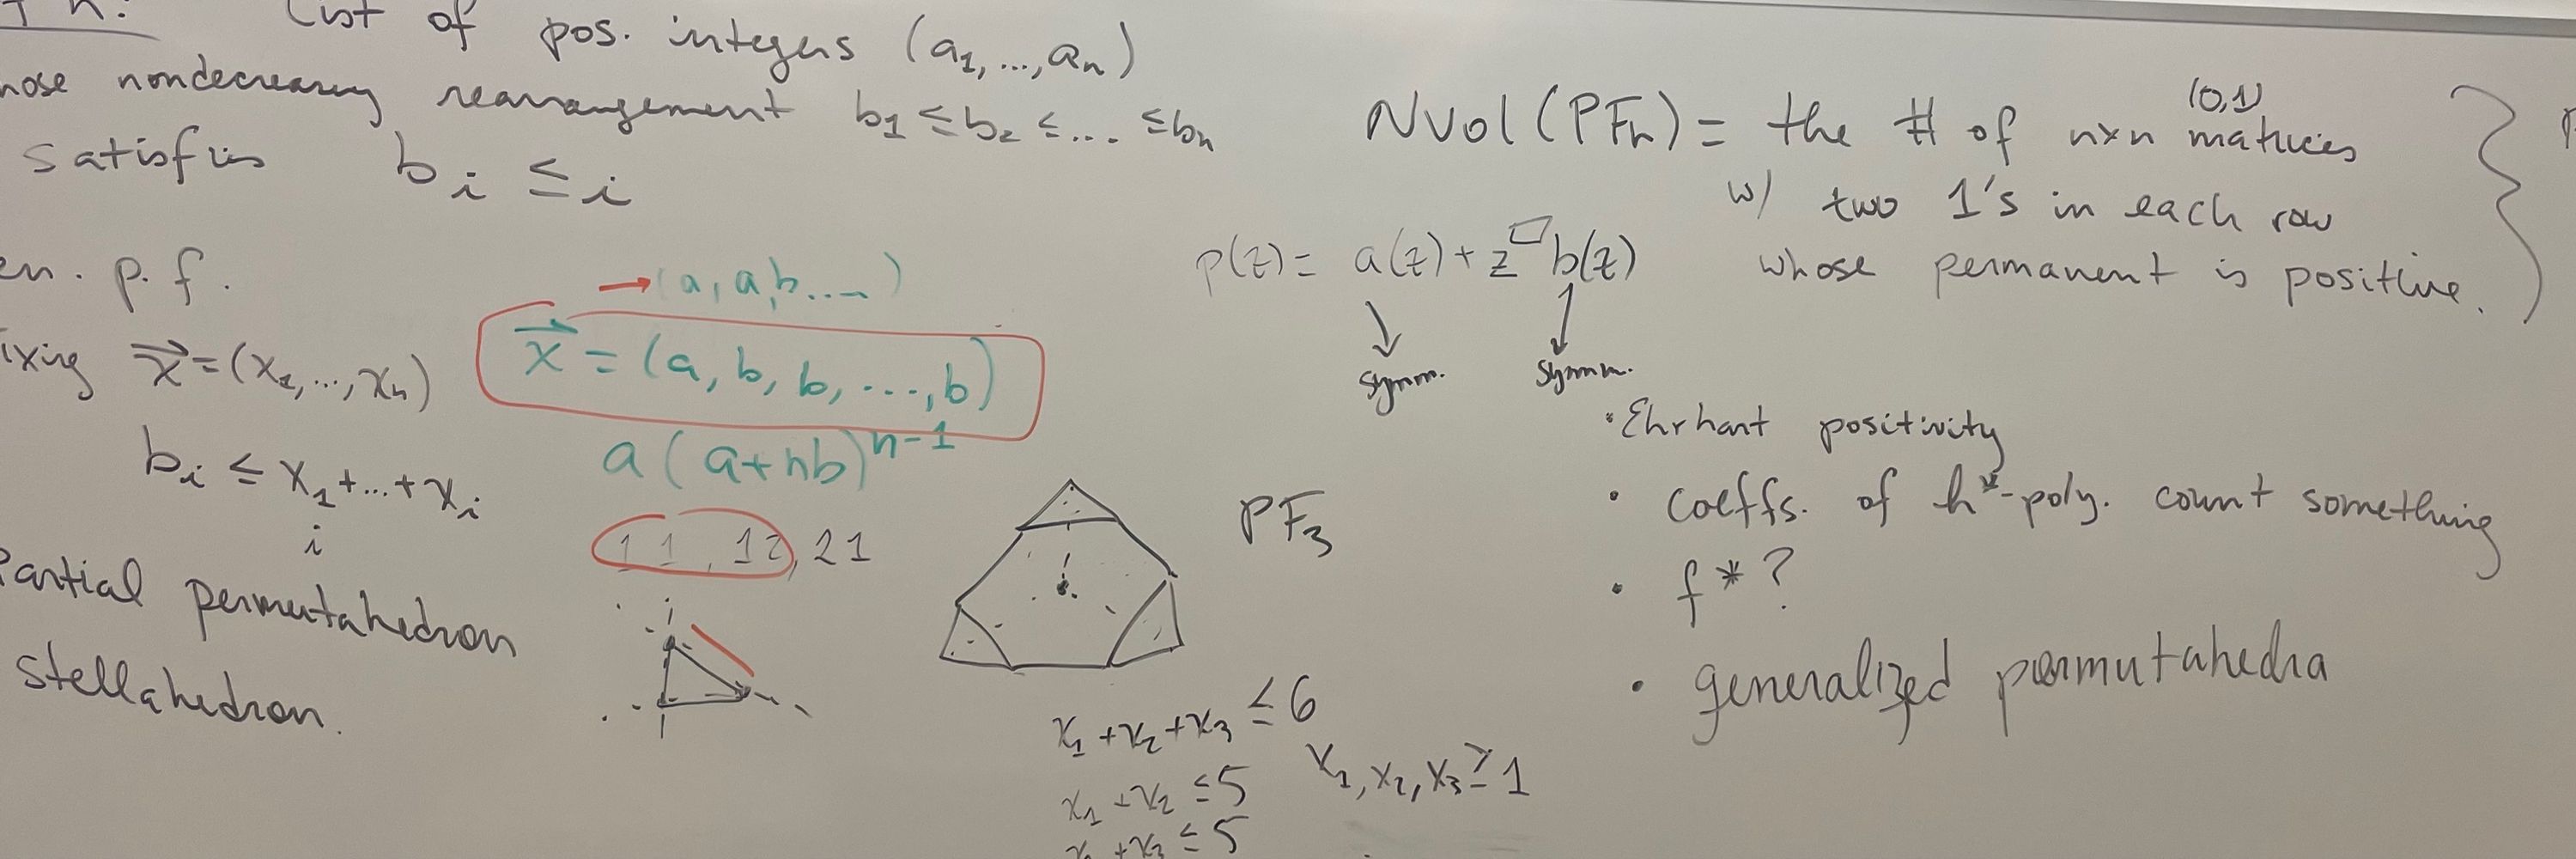 List of pos. integers (a₁, ..., aₙ)
nondecreasing rearrangement b₁ ≤ b₂ ≤ .... ≤ bₙ
satisfies bᵢ ≤ i
p. f.
x⃗ = (x₁, ..., xₙ)
bᵢ ≤ x₁ + ... + xᵢ
i
Partial permutahedron
stellahedron.
→ (a, a, b ... )
x⃗ = (a, b, b, ..., b)
a(a+nb)ⁿ⁻¹
11, 12, 21
PF₃
x₁ + x₂ + x₃ ≤ 6
x₁ + x₂ ≤ 5
x₁, x₂, x₃ ≥ 1
+ x₃ ≤ 5
(0,1)
NVol(PFₙ) = the # of n×n matrices
w/ two 1's in each row
whose permanent is positive.
p(z) = a(z) + z^□ b(z)
symm. symm.
• Ehrhart positivity
• coeffs. of h*-poly. count something
• f*?
• generalized permutahedra